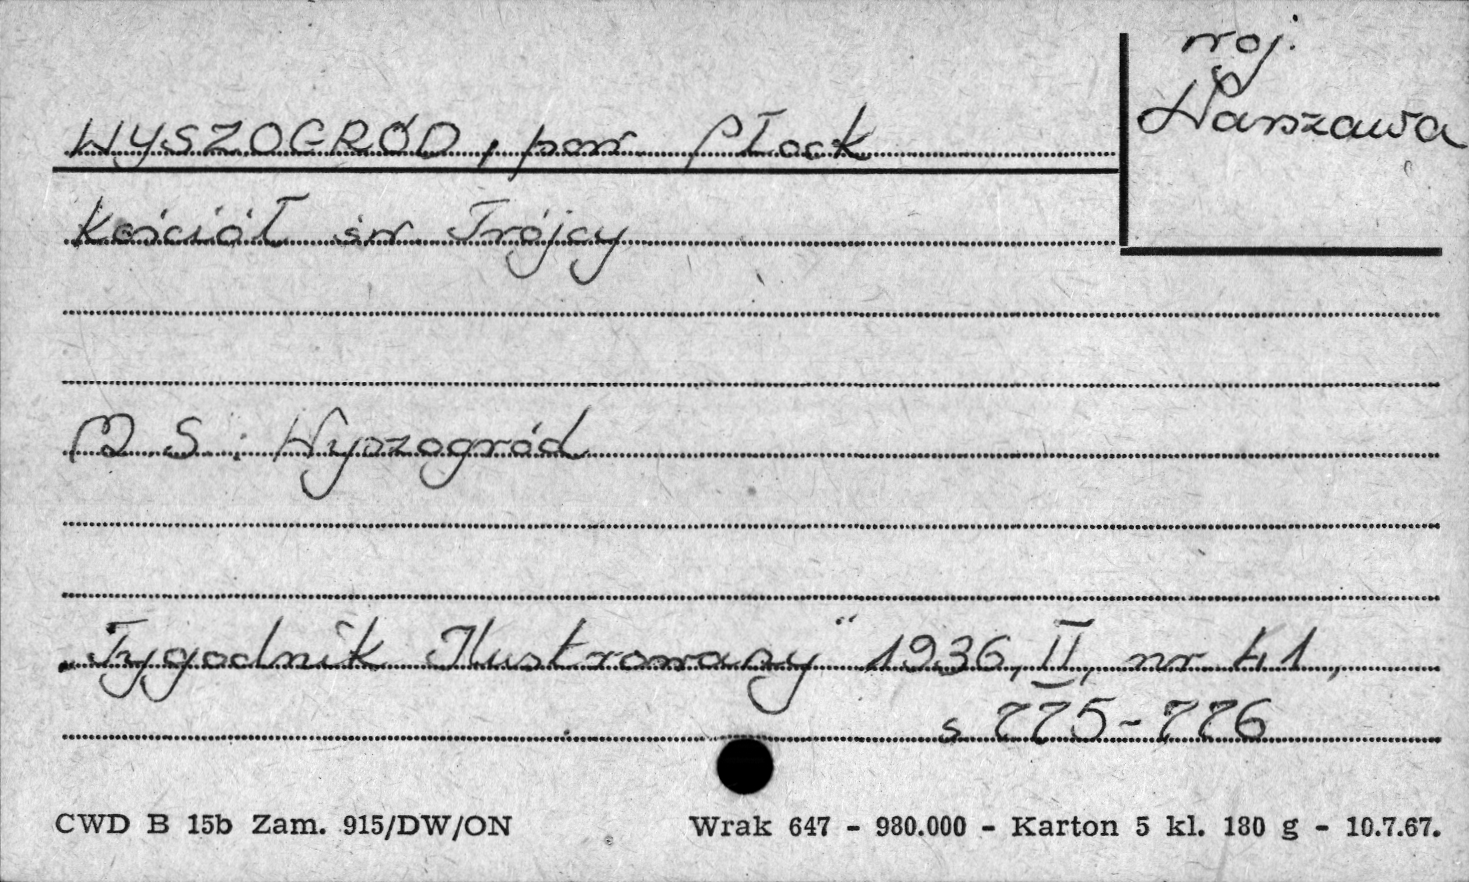 woj.
Warszawa
WYSZOGRÓD, pow. Płock
Kościół św. Trójcy
M. S.: Wyszogród
„Tygodnik Ilustrowany” 1936, II, nr 41,
s 775-776
CWD B 15b Zam. 915/DW/ON Wrak 647 - 980.000 - Karton 5 kl. 180 g - 10.7.67.